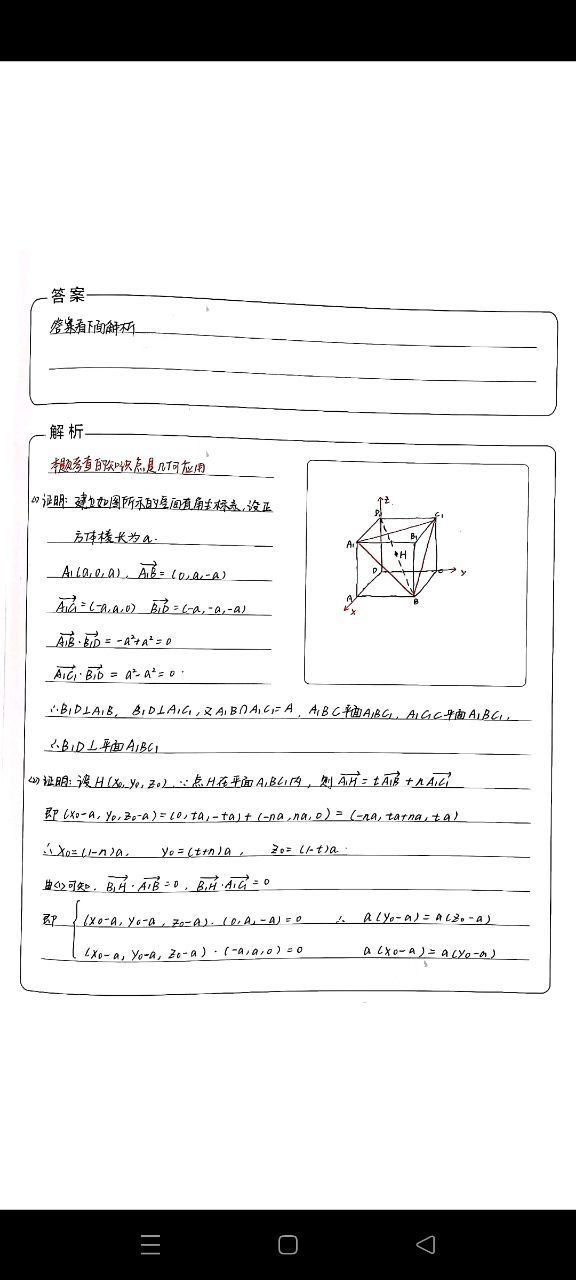 答案
答案看下面解析
解析
本题考查的知识点是几何应用
(1) 证明: 建立如图所示的空间直角坐标系, 设正
方体棱长为a.
A₁(a,0,a), A₁B→=(0,a,-a)
A₁C₁→=(-a,a,0) B₁D→=(-a,-a,-a)
A₁B→·B₁D→=-a²+a²=0
A₁C₁→·B₁D→=a²-a²=0.
∴B₁D⊥A₁B, B₁D⊥A₁C₁, 又A₁B∩A₁C₁=A, A₁B⊂平面A₁BC₁, A₁C₁⊂平面A₁BC₁,
∴B₁D⊥平面A₁BC₁
(2) 证明: 设H(x₀,y₀,z₀), ∵点H在平面A₁BC₁内, 则A₁H→=tA₁B→+nA₁C₁→
即(x₀-a,y₀,z₀-a)=(0,ta,-ta)+(-na,na,0)=(-na,ta+na,-ta)
∴x₀=(1-n)a, y₀=(t+n)a, z₀=(1-t)a.
由(1)可知, B₁H→·A₁B→=0, B₁H→·A₁C₁→=0
即 (x₀-a,y₀-a,z₀-a)·(0,a,-a)=0 ∴ a(y₀-a)=a(z₀-a)
(x₀-a,y₀-a,z₀-a)·(-a,a,0)=0 a(x₀-a)=a(y₀-a)
z
D₁
C₁
A₁
B₁
H
D
C
y
A
B
x